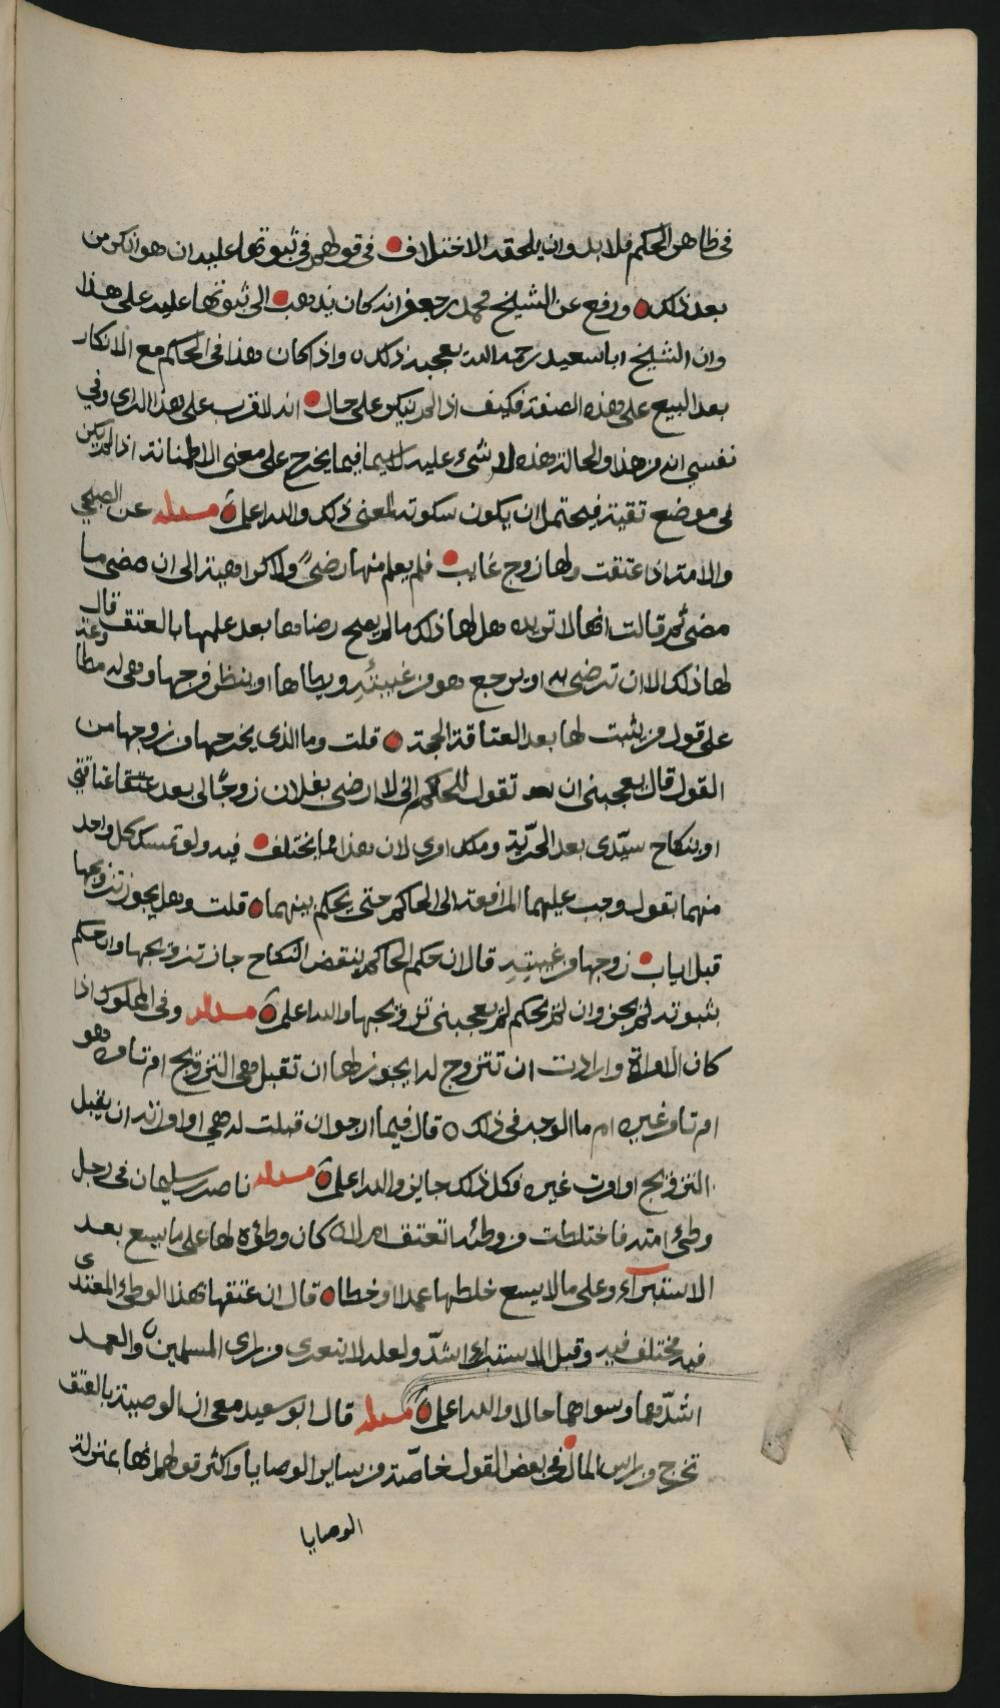 في ظاهر الحكم فلا بد وان يلحقه الاختلاف في قولهم في ثبوتها عليه ان هو انكر من
بعد ذلك ورفع عن الشيخ محمد بن جعفر انه كان يذهب الى ثبوتها عليه على هذا
وان الشيخ ابا سعيد رحمه الله يعجبه ذلك واذا كان هذا في الحكم مع الانكار
بعد البيع على هذه الصفة فكيف اذا لم ينكر على حال انه لاقرب على هذا الراي وفي
نفسي انه من هذا والحالة هذه لا شيء عليه لا سيما فيما يخرج على معنى الاطمانة اذا لم يكن
في موضع تقية فيحتمل ان يكون سكوته لمعنى ذلك والله اعلم مسئلة عن الصبحي
والامة اذا عتقت ولها زوج غايب فلم يعلم منها رضىً ولا كراهية الى ان مضى ما
مضى ثم قالت انها لا تريده هل لها ذلك ما لم يصح رضاها بعد علمها بالعتق قال وعنه
لها ذلك الا ان ترضى به او يرجع هو من غيبته ويطاها او ينظر فرجها وهي له مطا
على قول من يثبت لها بعد العتاقة الحجة قلت وما الذي يخرجها من زوجها من
القول قال يعجبني ان تقول للحاكم اني لا ارضى بفلان زوجًا لي بعد عتاقتي
او بنكاح سيّدي بعد الحرّية وهكذا اري لان هذا مما يختلف فيه ولو تمسك كل واحد
منهما بقول وجب عليهما المرافعة الى الحاكم حتى يحكم بينهما قلت وهل يجوز تزويجها
قبل اياب زوجها من غيبته قال ان حكم الحاكم بنقض النكاح جاز تزويجها وان حكم
بثبوته لم يجز وان لم يحكم لم يعجبني تزويجها والله اعلم مسئلة وفي المملوك اذا
كان لامراة وارادت ان تتزوج له ايجوز لها ان تقبل هي التزويج ام تامره هو
ام تامر غيره ام ما الوجه في ذلك قال فيما ارجو ان قبلت له هي او امرته ان يقبل
التزويج او امرت غيره فكل ذلك جايز والله اعلم مسئلة ناصر بن سليمان في رجل
وطئ امته فاختلطت من وطئه اتعتق ام لا كان وطؤه لها على ما يسع بعد
الاستبرآء وعلى ما لا يسع خلطها عمدا او خطا قال ان عتقها بهذا الوطء المعتدى
فيه مختلف فيه وقبل الاستبراء اشدّ ولعله لا يتعرى من راى المسلمين والعمد
اشدّهما وسواهما حالا والله اعلم مسئلة قال ابو سعيد معي ان الوصية بالعتق
تخرج من راس المال في بعض القول خاصّة من ساير الوصايا واكثر قولهم انها بمنزلة
الوصايا